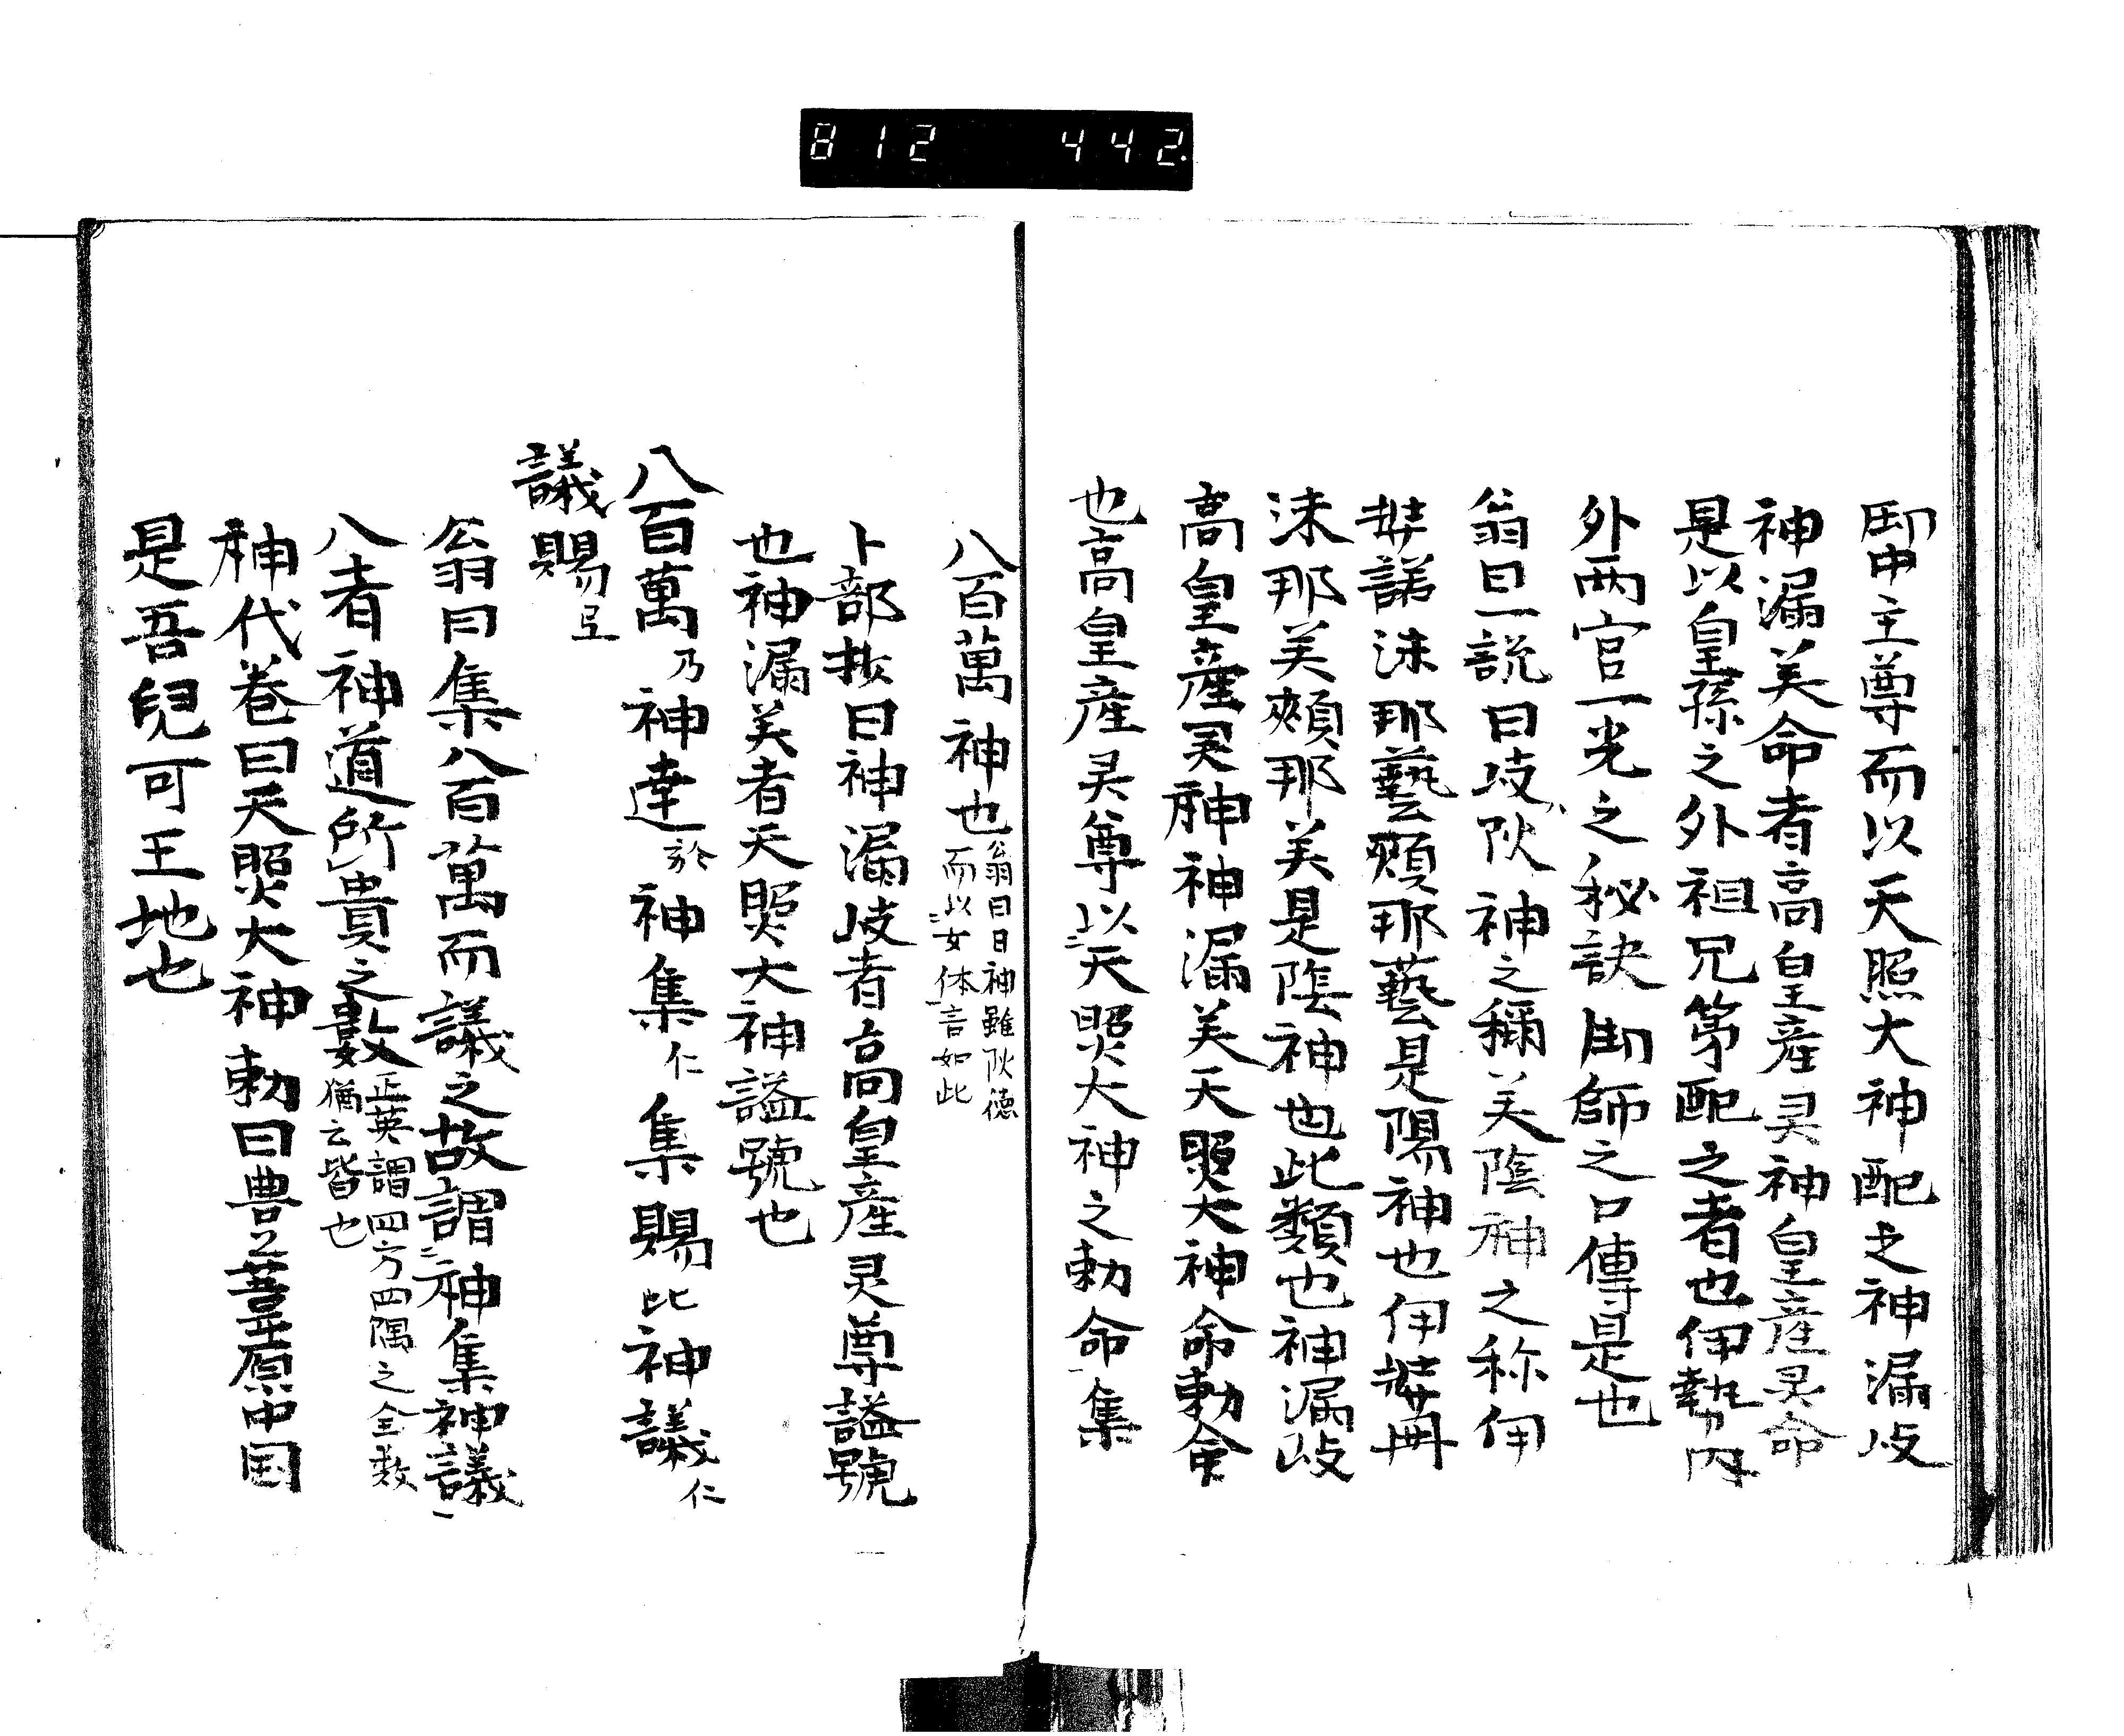 812 442.
御中主尊而以天照大神配之神漏岐
神漏美命者高皇産灵神皇産灵命
是以皇孫之外祖兄第配之者也伊勢内
外两宮一光之秘訣御師之口傳是也
翁曰一説曰岐、陽神之稱美陰神之称伊
弉諾沫那藝頬那藝是陽神也伊弉冊
沫那美頬那美是陰神也此類也神漏岐
高皇産灵神神漏美天照大神命勅命
也高皇産灵尊以二天照大神之勅命一集
八百萬神也翁曰日神雖陽德
而以二女体一言如此
卜部抄曰神漏岐者高皇産灵尊謚號
也神漏美者天照大神謚號也
八百萬乃神達於神集仁集賜比神議仁
議賜
翁曰集八百萬而議之故謂二神集神議一
八者神道所貴之數正英謂四方四隅之全数
猶云皆也
神代巻曰天照大神勅曰豊葦原中国
是吾兒可王地也